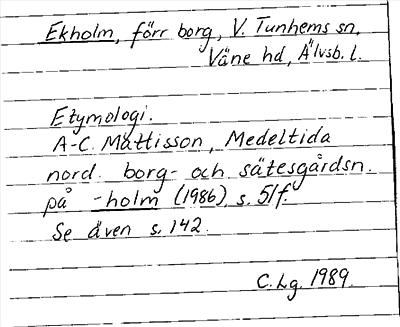 Ekholm, förr borg, V. Tunhems sn,
Väne hd, Älvsb. l.
Etymologi.
A-C. Mattisson, Medeltida
nord. borg- och sätesgårdsn.
på -holm (1986) s. 51f.
Se även s. 142.
C. Lg. 1989.